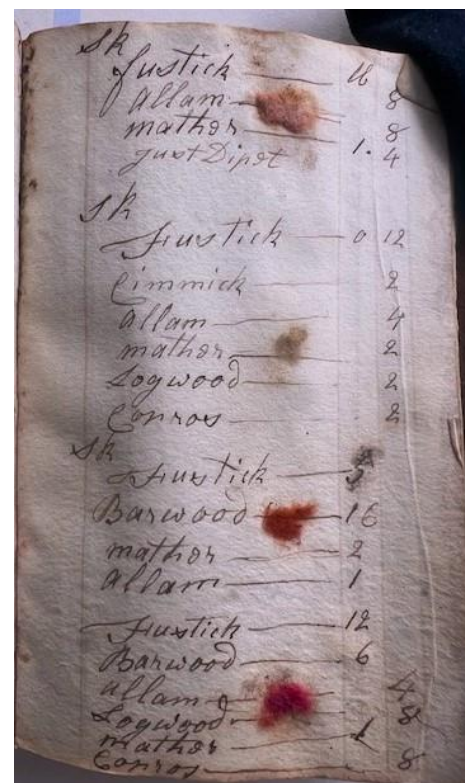 sk
fustick 16
allam 8
mather 8
just Dipet 1. 4
sk
Fustick 0 12
Cimmick 2
allam 4
mather 2
Logwood 2
Conros 2
sk
Fustick
Barwood 16
mather 2
allam 1
Fustick 12
Barwood 6
allam 4
Logwood 8
mather 1
Conros 8